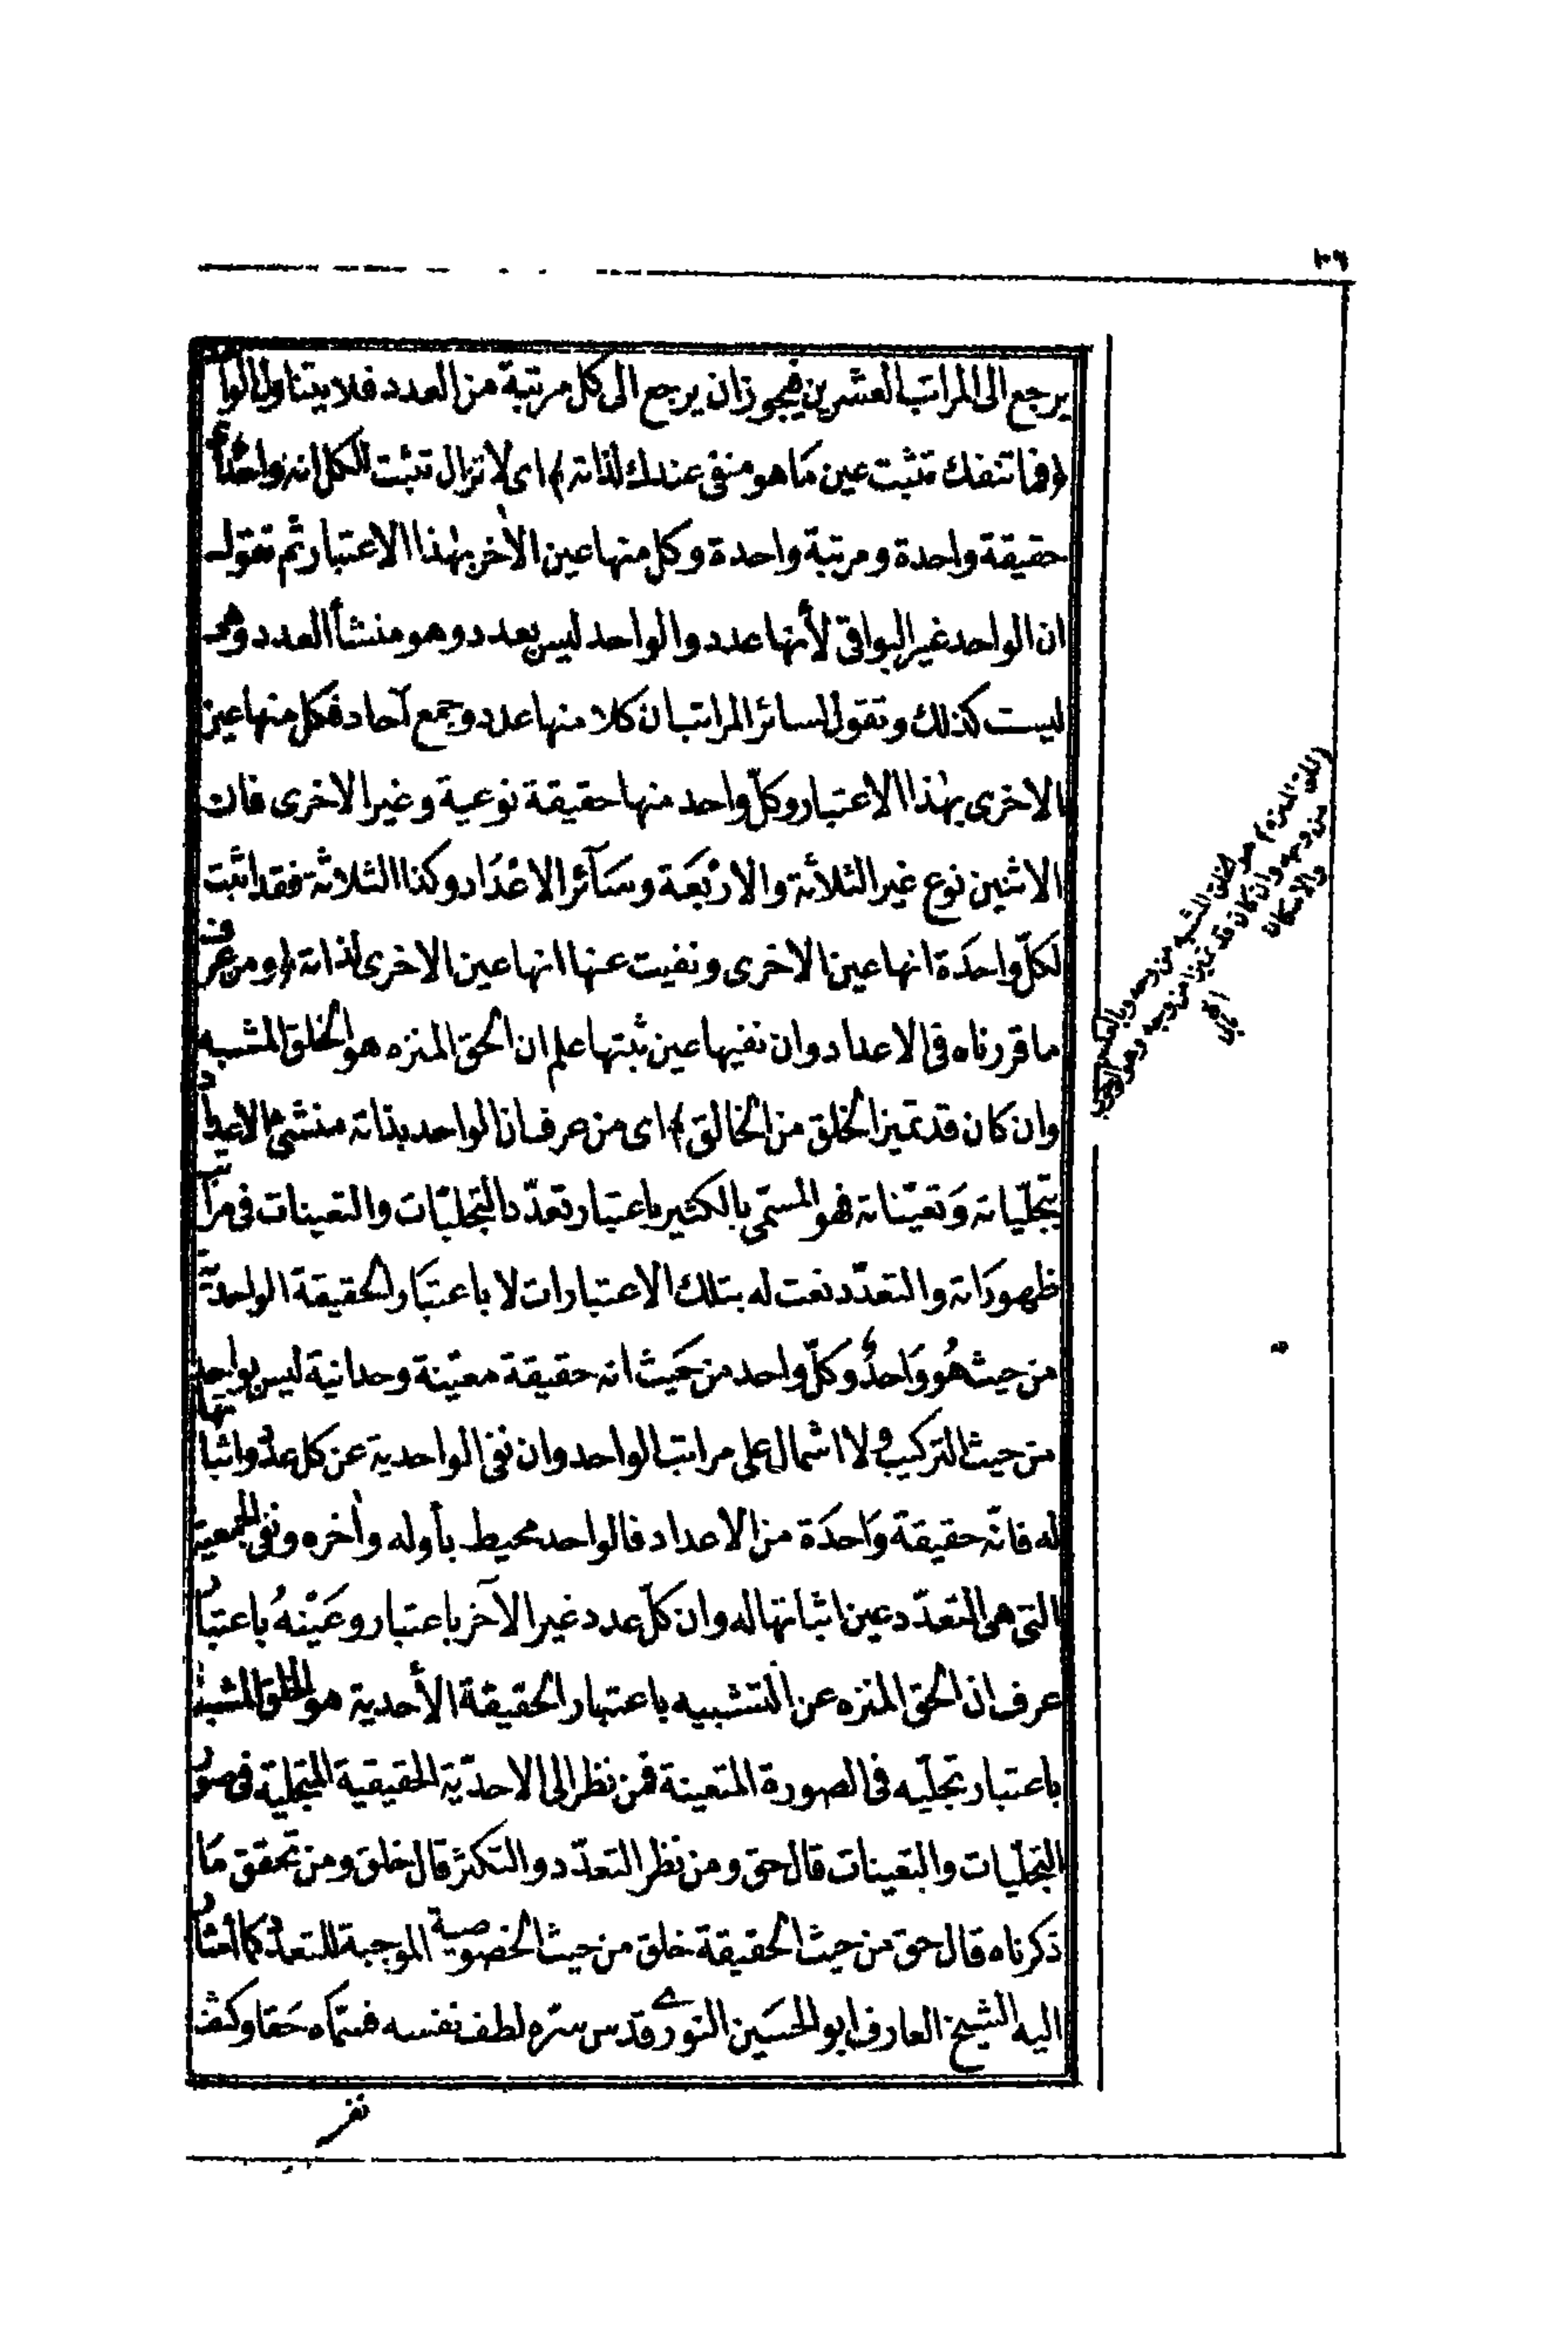 ١٠٦
يرجع الى المراتب العشرين فيجوز ان يرجع الى كل مرتبة من العدد فلا يتناول الوا
﴿فما تنفك تثبت عين ما هو منفى عندك لذاته﴾ اى لا تزال تثبت لكل انه واحد أى
حقيقة واحدة ومرتبة واحدة وكل منها عين الأخر بهذا الاعتبار ثم تقول
ان الواحد غير البواقى لأنها عدد والواحد ليس بعدد وهو منشأ العدد وهى
ليست كذلك وتقول لسائر المراتب ان كلا منها عدد وجمع آحاد فكل منها عين
الاخرى بهذا الاعتبار وكلّ واحد منها حقيقة نوعية وغير الاخرى فان
الاثنين نوع غير الثلاثة والاربعة وسآئر الاعداد وكذا الثلاثة فقد اثبت
لكلّ واحدة انها عين الاخرى ونفيت عنها انها عين الاخرى لذاته ﴿ومن عرف
ما قررناه فى الاعداد وان نفيها عين ثبتها علم ان الحق المنزه هو الخلق المشبه
وان كان قد تميز الخلق من الخالق﴾ اى من عرف ان الواحد بذاته منشئ الاعداد
بتجلّياته وتعيّناته فهو المسمّى بالكثير باعتبار تعدّد التجليّات والتعينات فى مراتب
ظهوراته والتعدّد نعت له بتلك الاعتبارات لا باعتبار الحقيقة الواحديّة
من حيث هُو وَاحدٌ وكلّ واحد من حَيث انه حقيقة معيّنة وحدانية ليس بواحد
من حيث التركيب ولا اشتمال على مراتب الواحد وان نفى الواحدية عن كل عدد واثباتها
له فانّه حقيقة وَاحدَة من الاعداد فالواحد محيط بأوله وأخره ونفى الجمعية
التى هى التعدّد عين اثباتها له وان كلّ عدد غير الآخر باعتبار وعَيْنهُ باعتبار
عرف ان الحق المنزه عن التشبيه باعتبار الحقيقة الأحدية هو الخلق المشبه
باعتبار تجلّيه فى الصورة المتعينة فمن نظر الى الاحديّة الحقيقية المتجلية فى صور
التجلّيات والتعينات قال حق ومن نظر التعدّد والتكثر قال خلق ومن تحقق مَا
ذكرناه قال حق من حيث الحقيقة خلق من حيث الخصوصية الموجبة للتعدّد كما أشار
اليه الشيخ العارف ابو الحسَين النورى قدس سرّه لطف نفسه فسمّاه حَقا وكثف
نفسه